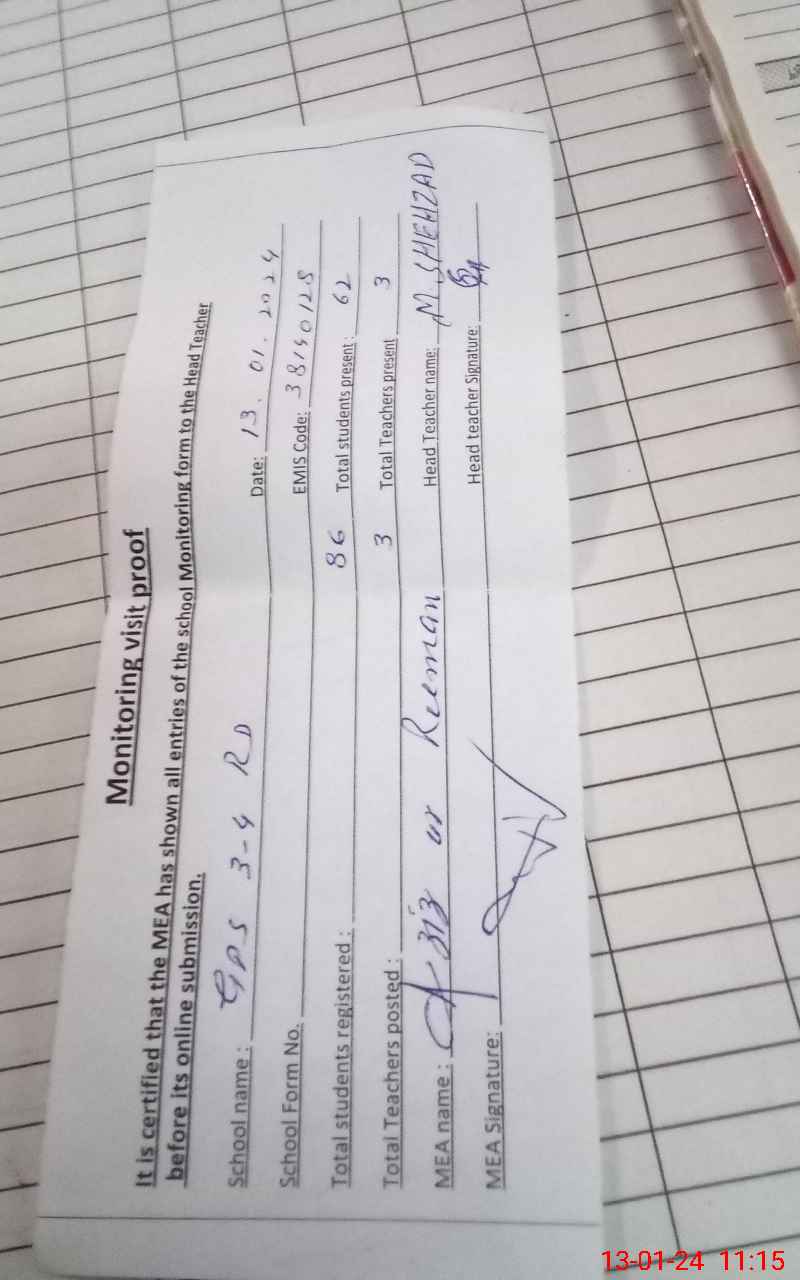 Monitoring visit proof
It is certified that the MEA has shown all entries of the school Monitoring form to the Head Teacher
before its online submission.
School name : GPS 3-4 RD Date: 13.01.2024
School Form No. EMIS Code: 38140125
Total students registered : 86 Total students present : 62
Total Teachers posted : 3 Total Teachers present 3
MEA name : Aziz ur Rheman Head Teacher name: M SHEHZAD
MEA Signature: Head teacher Signature:
13-01-24 11:15